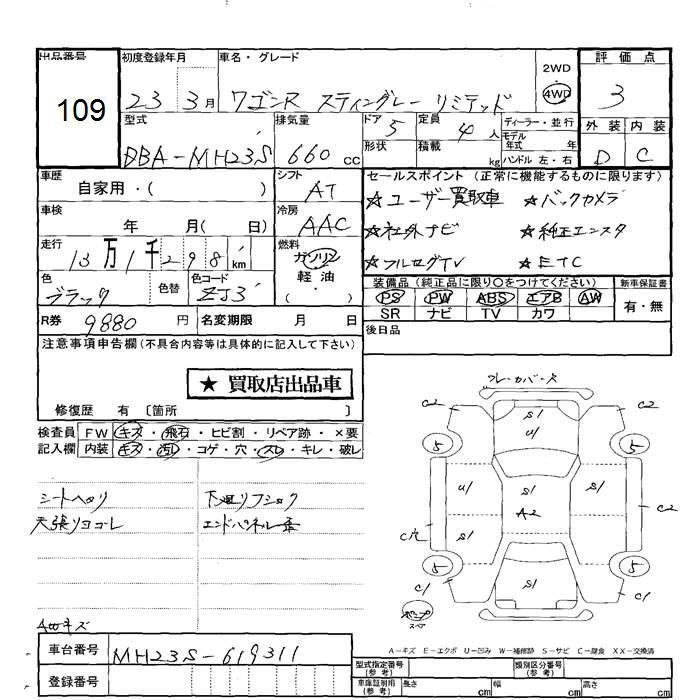 出品番号
109
初度登録年月
23 3月
車名・グレード
ワゴンR スティングレー リミテッド
2WD
4WD
評価点
3
型式
DBA-MH23S
排気量
660 cc
ドア 5
形状
定員 4人
積載 kg
ディーラー・並行
モデル年式 年
ハンドル 左・右
外装 内装
D C
車歴
自家用・( )
シフト
AT
車検
年 月( 日)
冷房
AAC
走行
13万1千298km
燃料
ガソリン
軽油
色
ブラック
色替
色コード
ZJ3
R券 9880 円
名変期限 月 日
セールスポイント(正常に機能するものに限ります)
★ユーザー買取車 ★バックカメラ
★社外ナビ ★純正エンスタ
★フルセグTV ★ETC
装備品(純正品に限り○をつけてください)
PS PW ABS エアB AW
SR ナビ TV カワ
新車保証書
有・無
後日品
注意事項申告欄(不具合内容等は具体的に記入して下さい)
★ 買取店出品車
修復歴 有 〔箇所 〕
検査員記入欄
FW キズ・飛石・ヒビ割・リペア跡・×要
内装 キズ・汚レ・コゲ・穴・スレ・キレ・破レ
シートヘタリ
天張リヨゴレ
下廻リフショク
エンドパネル歪
AWキズ
ブレーカバーズ
S1
U1
C2 C2
5 5
U1 S1 S1
A2
C穴 S1 C2
5 5
C1 S1 C1
スペア
A-キズ E-エクボ U-凹み W-補修跡 S-サビ C-腐食 XX-交換済
車台番号 MH23S-619311
登録番号
型式指定番号(参考)
類別区分番号(参考)
車庫証明用(参考) 長さ cm 幅 cm 高さ cm